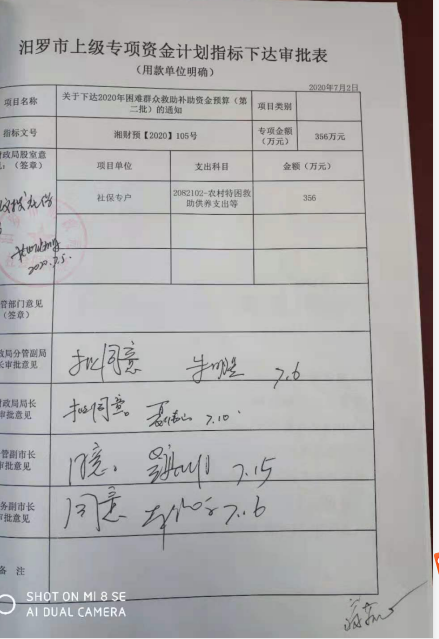 汨罗市上级专项资金计划指标下达审批表
（用款单位明确）
2020年7月2日
项目名称 关于下达2020年困难群众救助补助资金预算（第二批）的通知 项目类别
指标文号 湘财预【2020】105号 专项金额（万元） 356万元
财政局股室意见：（签章） 项目单位 支出科目 金额（万元）
社保专户 2082102-农村特困救助供养支出等 356
2020.7.5.
管部门意见
（签章）
政局分管副局
长审批意见 拟同意 7.6
财政局局长
审批意见 拟同意。 7.10.
管副市长
审批意见 同意。 7.15
务副市长
审批意见 同意 7.16
备 注
SHOT ON MI 8 SE
AI DUAL CAMERA